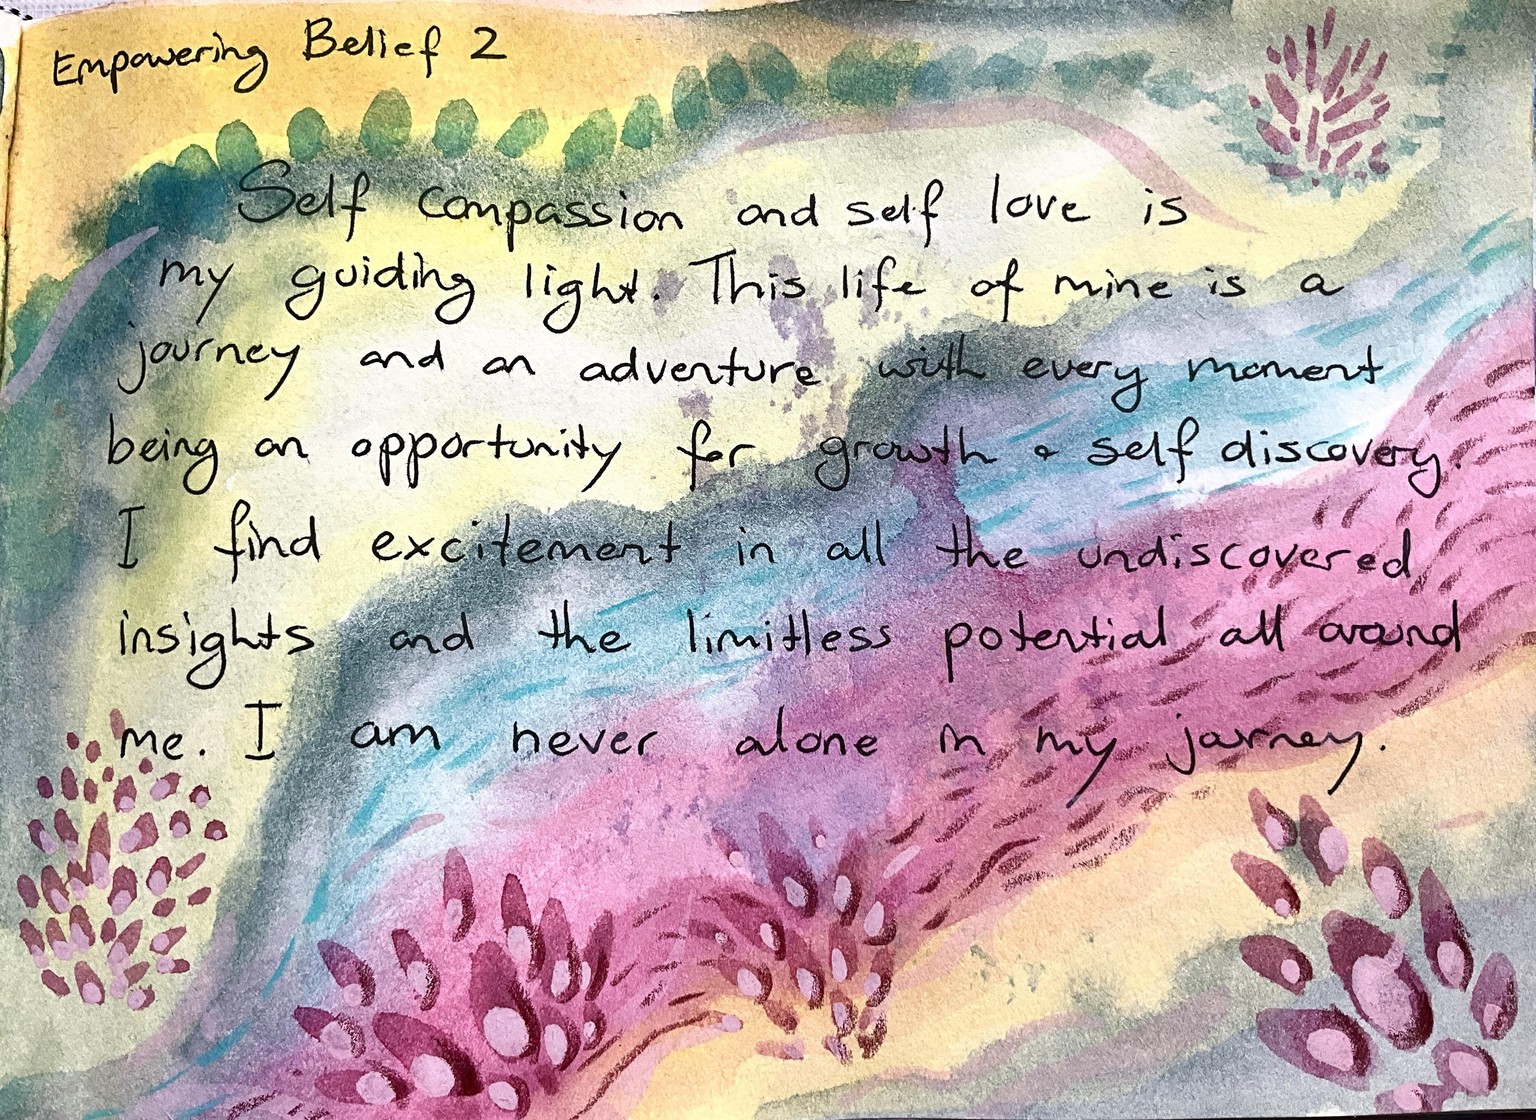 Empowering Belief 2
Self compassion and self love is
my guiding light. This life of mine is a
journey and an adventure with every moment
being an opportunity for growth & self discovery.
I find excitement in all the undiscovered
insights and the limitless potential all around
me. I am never alone in my journey.